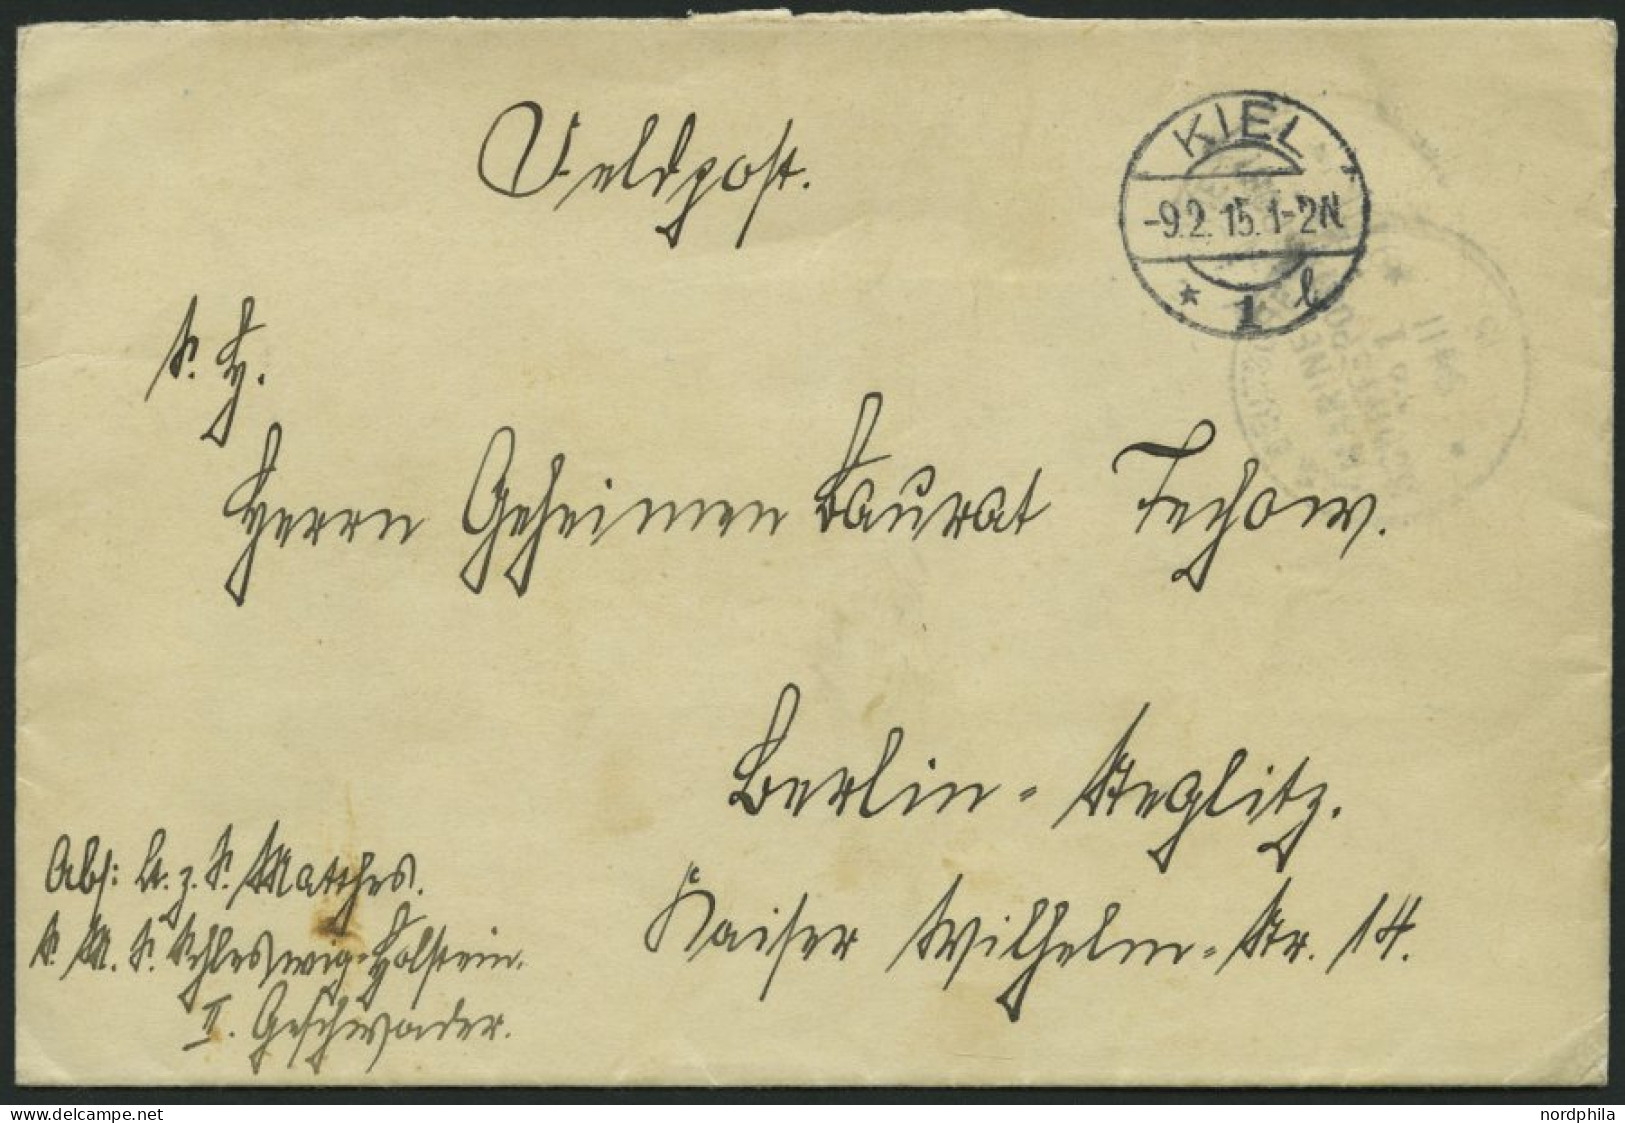 Feldpost.
KIEL
-9.2.15.1-2N
* 1 l
S. H.
Herrn Geheimen Baurat Techow.
Berlin-Steglitz.
Kaiser Wilhelm-Str. 14.
Abs: L. z. S. Matthes.
S. M. S. Schleswig-Holstein.
II. Geschwader.
MARINE
No 1
delcampe.net
nordphila